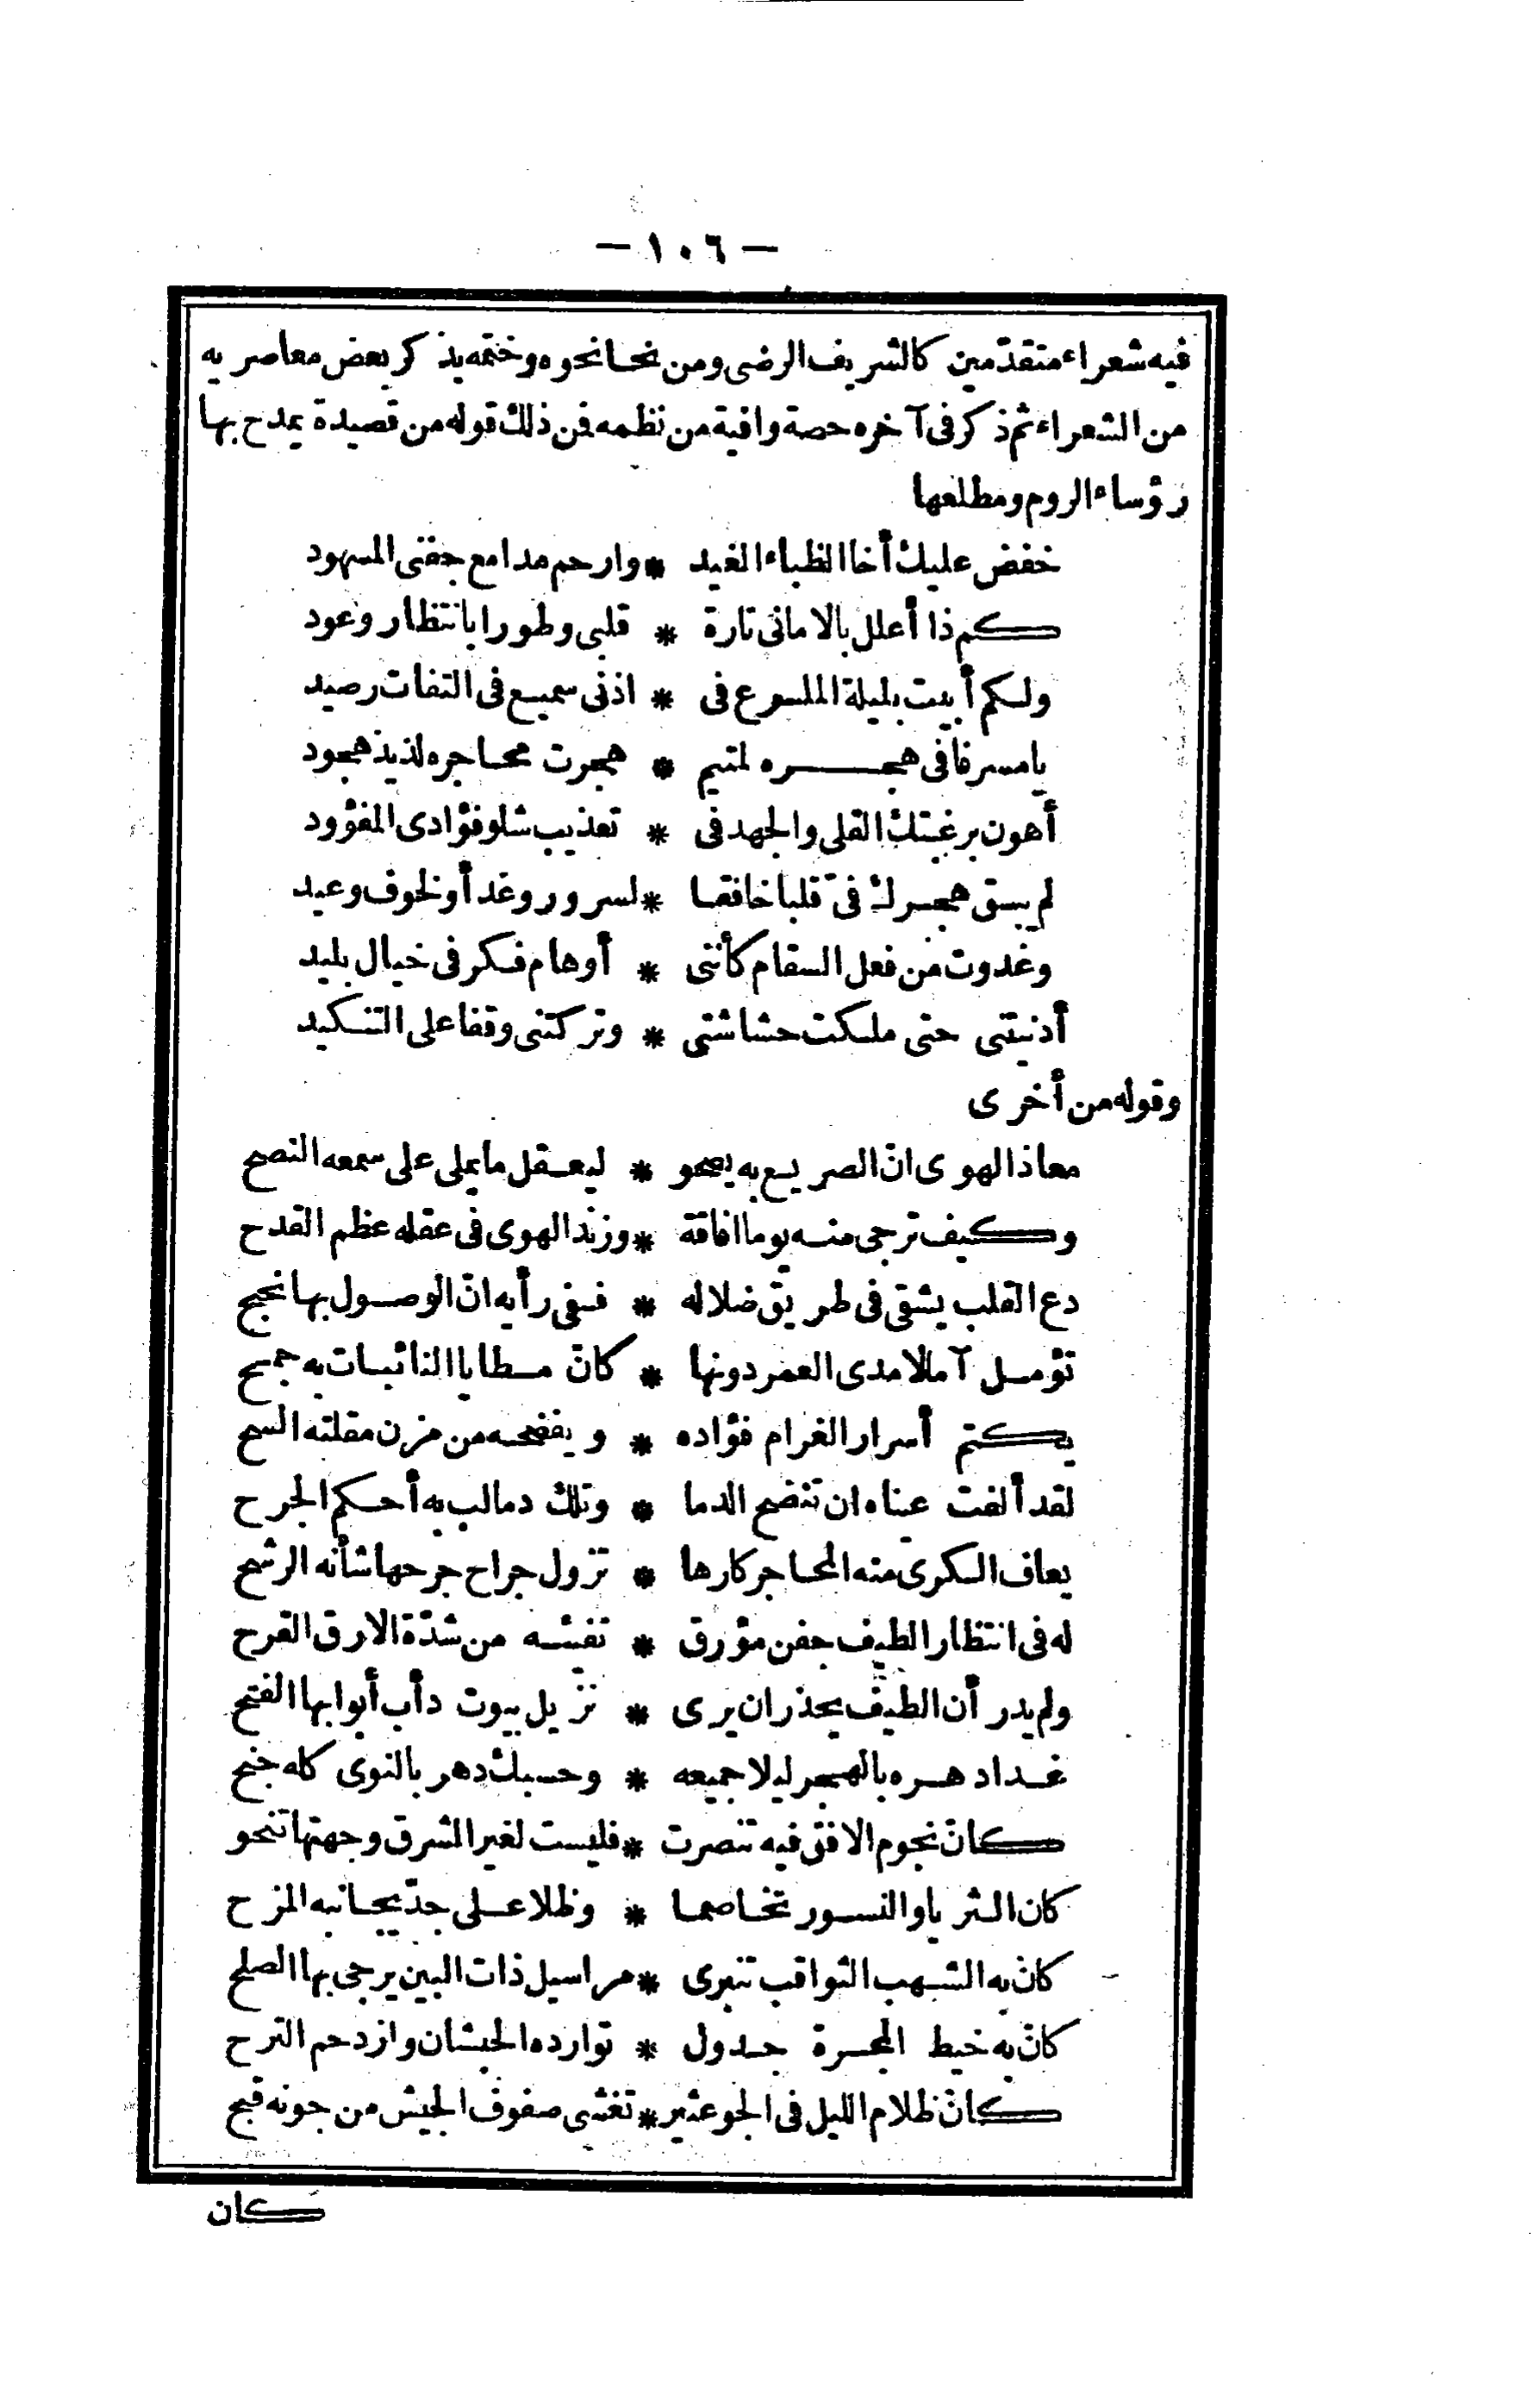 — ١٠٦ —
فيه شعراء متقدّمين كالشريف الرضى ومن نحا نحوه وختمه بذكر بعض معاصريه
من الشعراء ثم ذكر فى آخره حصة وافية من نظمه فمن ذلك قوله من قصيدة يمدح بها
رؤساء الروم ومطلعها
خفض عليك أخا الظباء الغيد * وارحم مدامع جفنى المسهود
كم ذا أعلل بالامانى تارة * قلبى وطورا بانتظار وعود
ولكم أبيت بليلة الملسوع فى * اذنى سميع فى التفات رصيد
يا مسرفا فى هجره لمتيم * هجرت محاجره لذيذ هجود
أهون برغبتك القلى والجهد فى * تعذيب شلو فؤادى المفؤود
لم يبق هجرك فىّ قلبا خافقا * لسرور وغد أو لخوف وعيد
وغدوت من فعل السقام كأننى * أوهام فكر فى خيال بليد
أدنيتنى حتى ملكت حشاشتى * وتركتنى وقفا على التنكيد
وقوله من أخرى
معاذ الهوى انّ الصريع به يصحو * ليعقل ما يملى على سمعه النصح
وكيف ترجى منه يوما افاقة * وزند الهوى فى عقله عظم القدح
دع القلب يشقى فى طريق ضلاله * ففى رأيه انّ الوصول بها نجح
تؤمل آمالا مدى العمر دونها * كانّ مطايا النائبات به جمح
يكتم أسرار الغرام فؤاده * ويفضحه من مزن مقلته السح
لقد ألفت عيناه ان تنضح الدما * وتلك دما لب به أحكم الجرح
يعاف الكرى منه المحاجر كارها * تزول جراح جرحها شأنه الرشح
له فى انتظار الطيف جفن مؤرق * تفشه من شدّة الارق القرح
ولم يدر أن الطيف يحذر ان يرى * نزيل بيوت دأب أبوابها الفتح
غدا دهره بالهجر ليلا جميعه * وحسبك دهر بالنوى كله جنح
كانّ نجوم الافق فيه تنصرت * فليست لغير الشرق وجهتها تنحو
كان الثريا والنسور تخاصما * وظلا على جدّ يجانبه المزح
كانّ به الشهب الثواقب تنبرى * مراسيل ذات البين يرجى بها الصلح
كانّ به خيط المجرة جدول * توارده الحبشان وازدحم الترح
كانّ ظلام الليل فى الجو عثير * تغشى صفوف الجيش من جونه قبح
كان